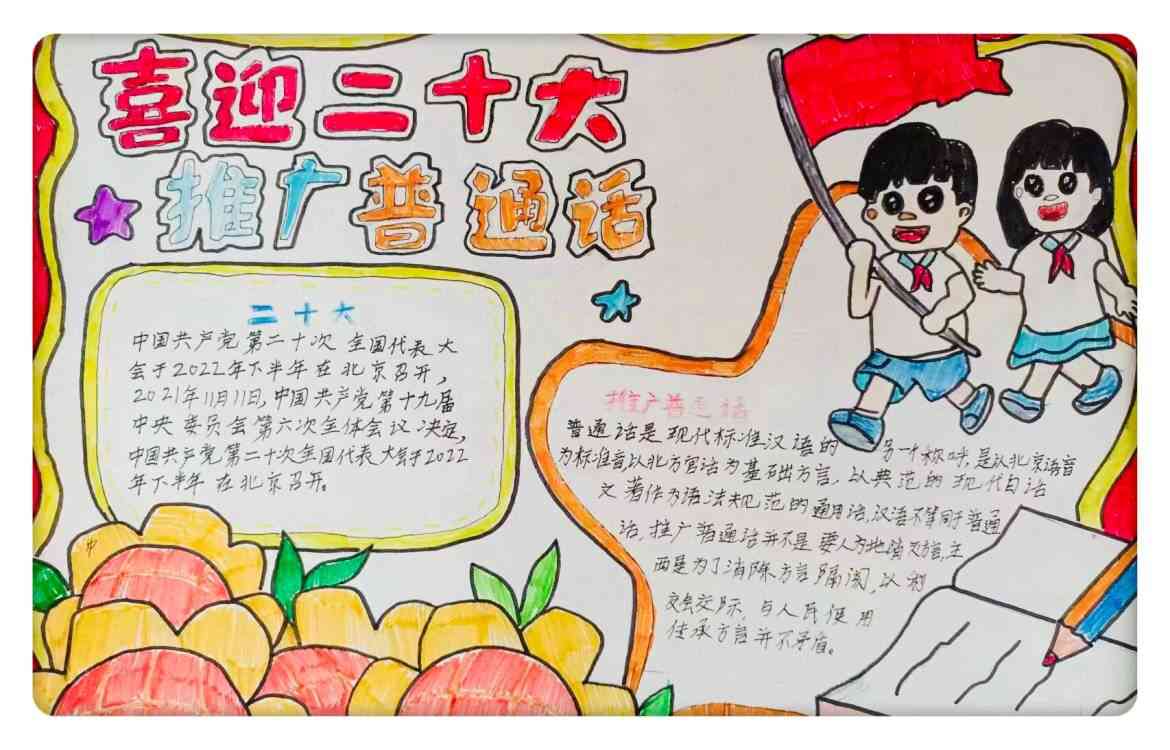 喜迎二十大
推广普通话
二十大
中国共产党第二十次全国代表大
会于2022年下半年在北京召开,
2021年11月11日,中国共产党第十九届
中央委员会第六次全体会议决定,
中国共产党第二十次全国代表大会于2022
年下半年在北京召开。
推广普通话
普通话是现代标准汉语的另一个称呼,是以北京语音
为标准音,以北方官话为基础方言,以典范的现代白话
文著作为语法规范的通用语,汉语不等同于普通
话,推广普通话并不是要人为地消灭方言,主
要是为了消除方言隔阂,以利
交际,与人民使用
传承方言并不矛盾。